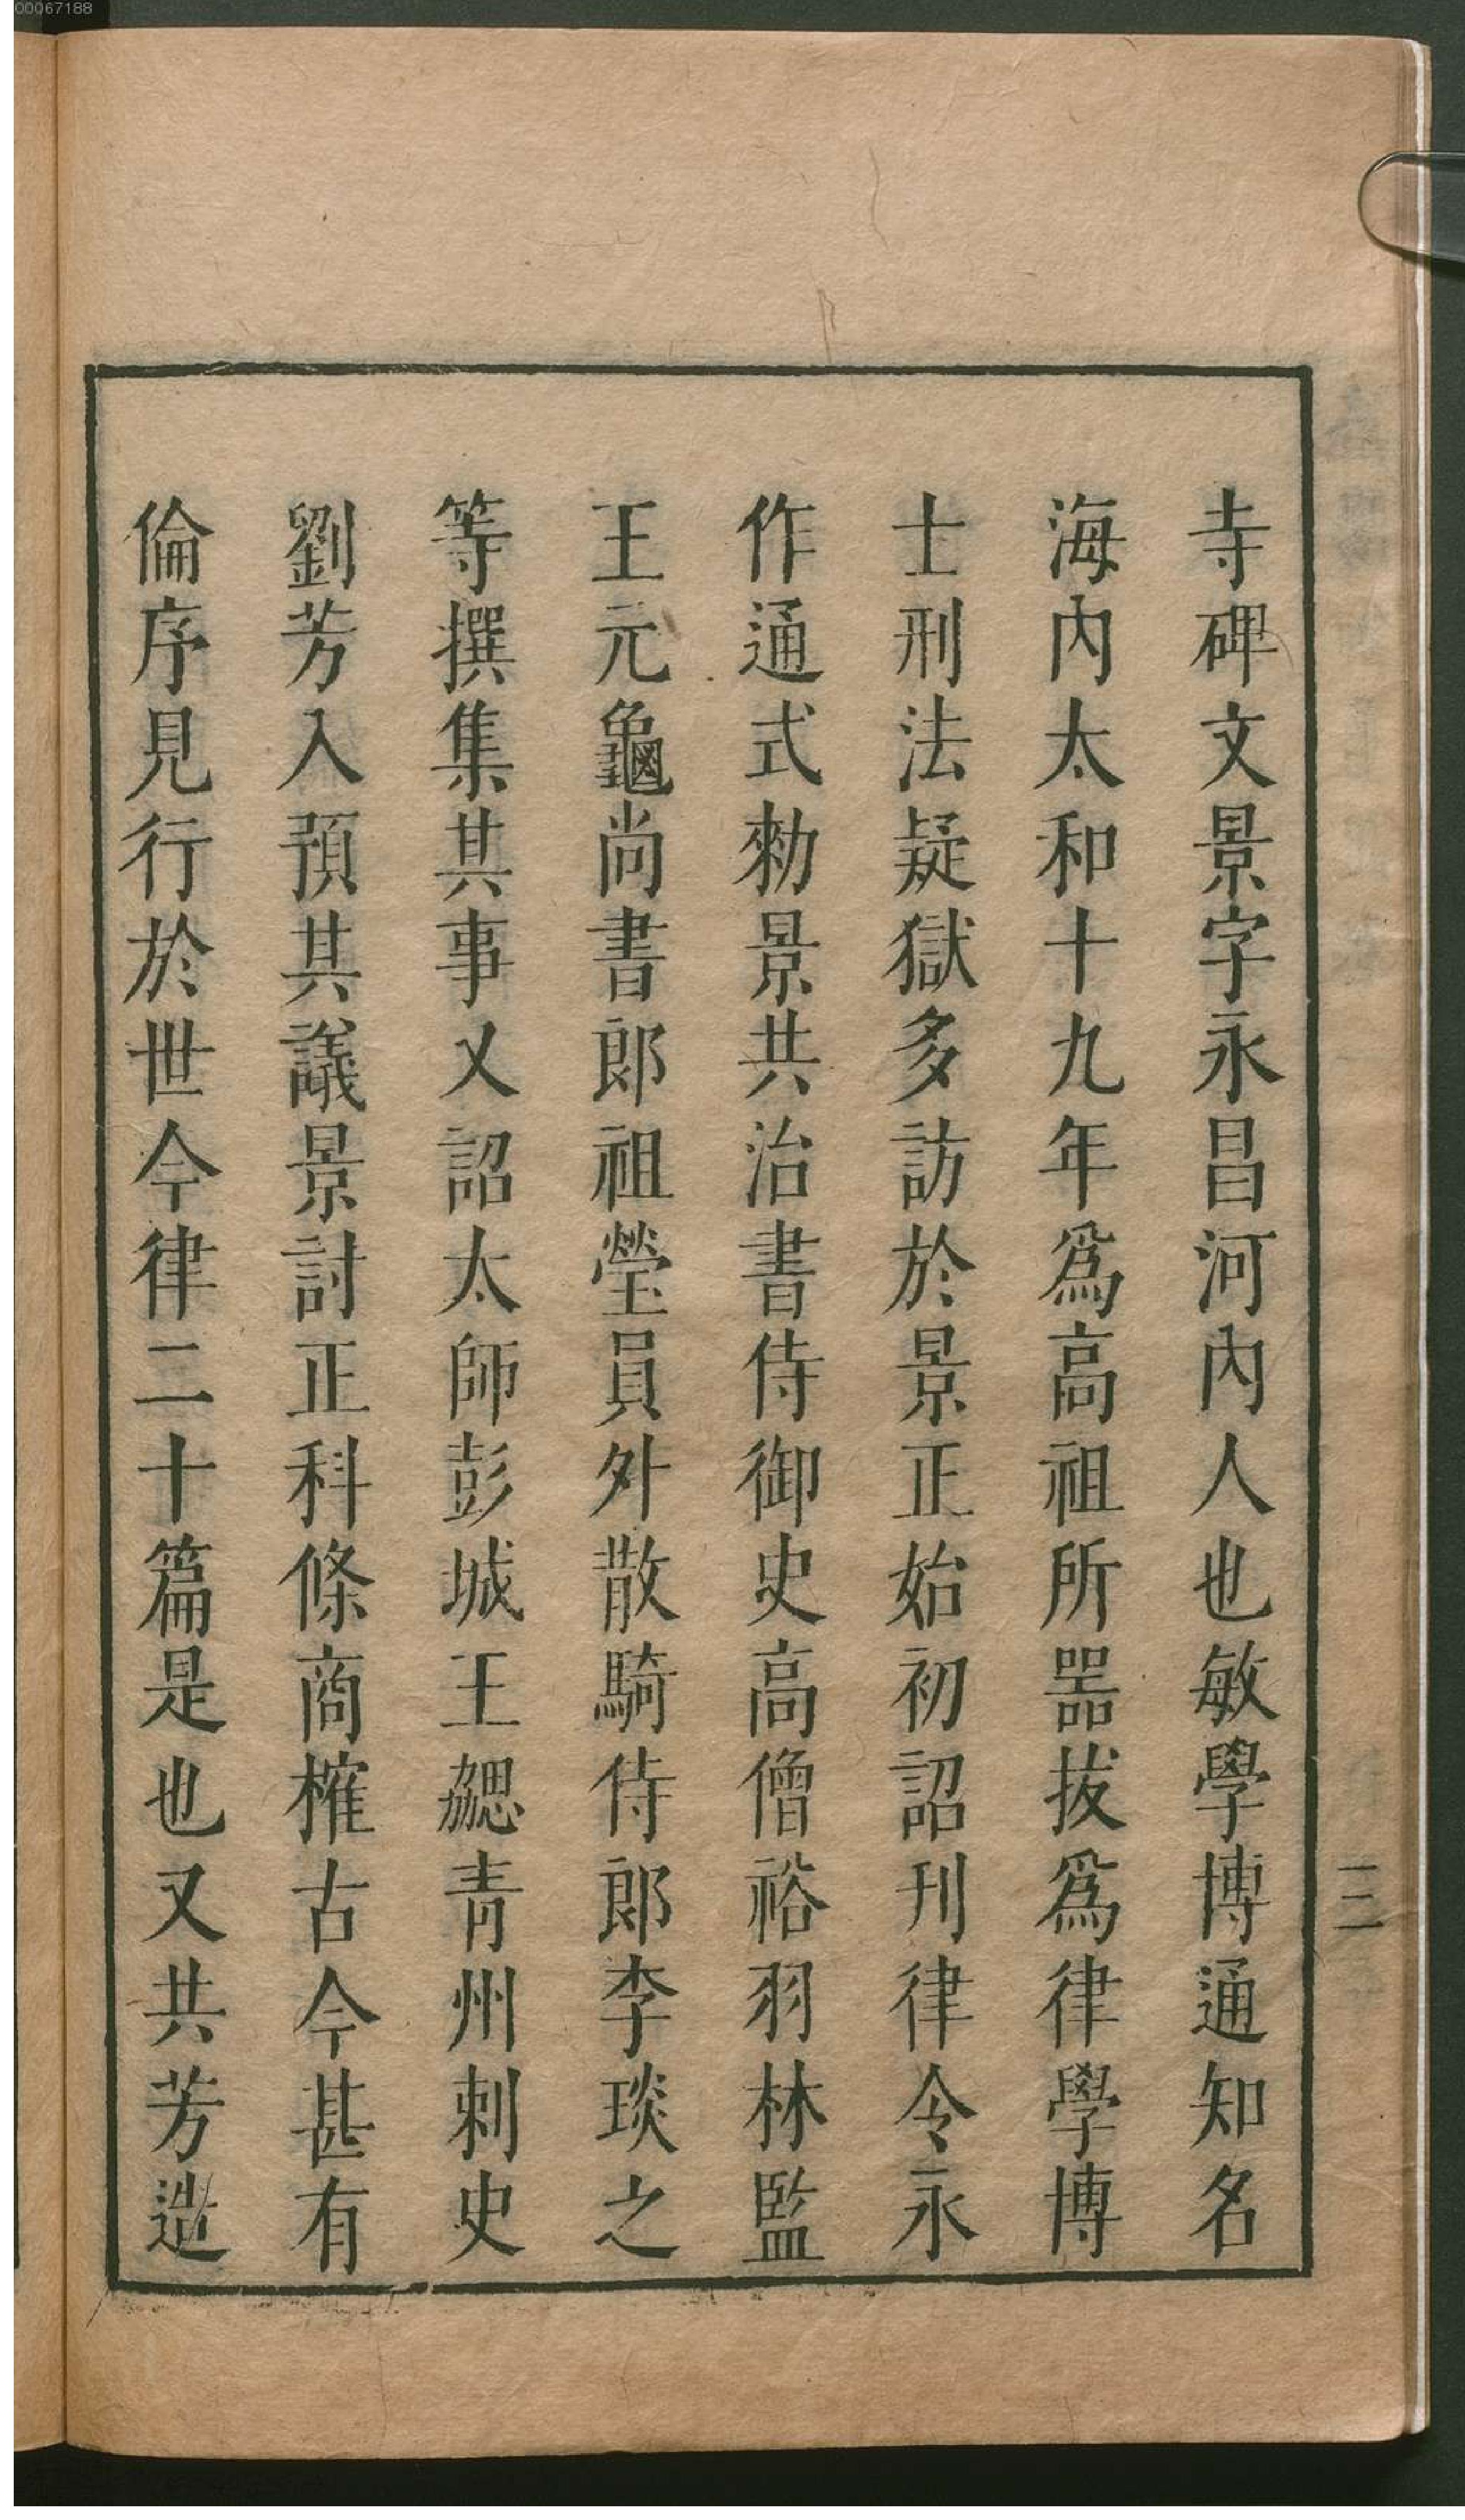 00067188
寺碑文景字永昌河內人也敏學博通知名
海內太和十九年爲高祖所噐拔爲律學博
士刑法疑獄多訪於景正始初詔刊律令永
作通式勑景共治書侍御史高僧裕羽林監
王元龜尚書郎祖瑩員外散騎侍郎李琰之
等撰集其事又詔太師彭城王勰青州刺史
劉芳入預其議景討正科條商榷古今甚有
倫序見行於世今律二十篇是也又共芳造
三